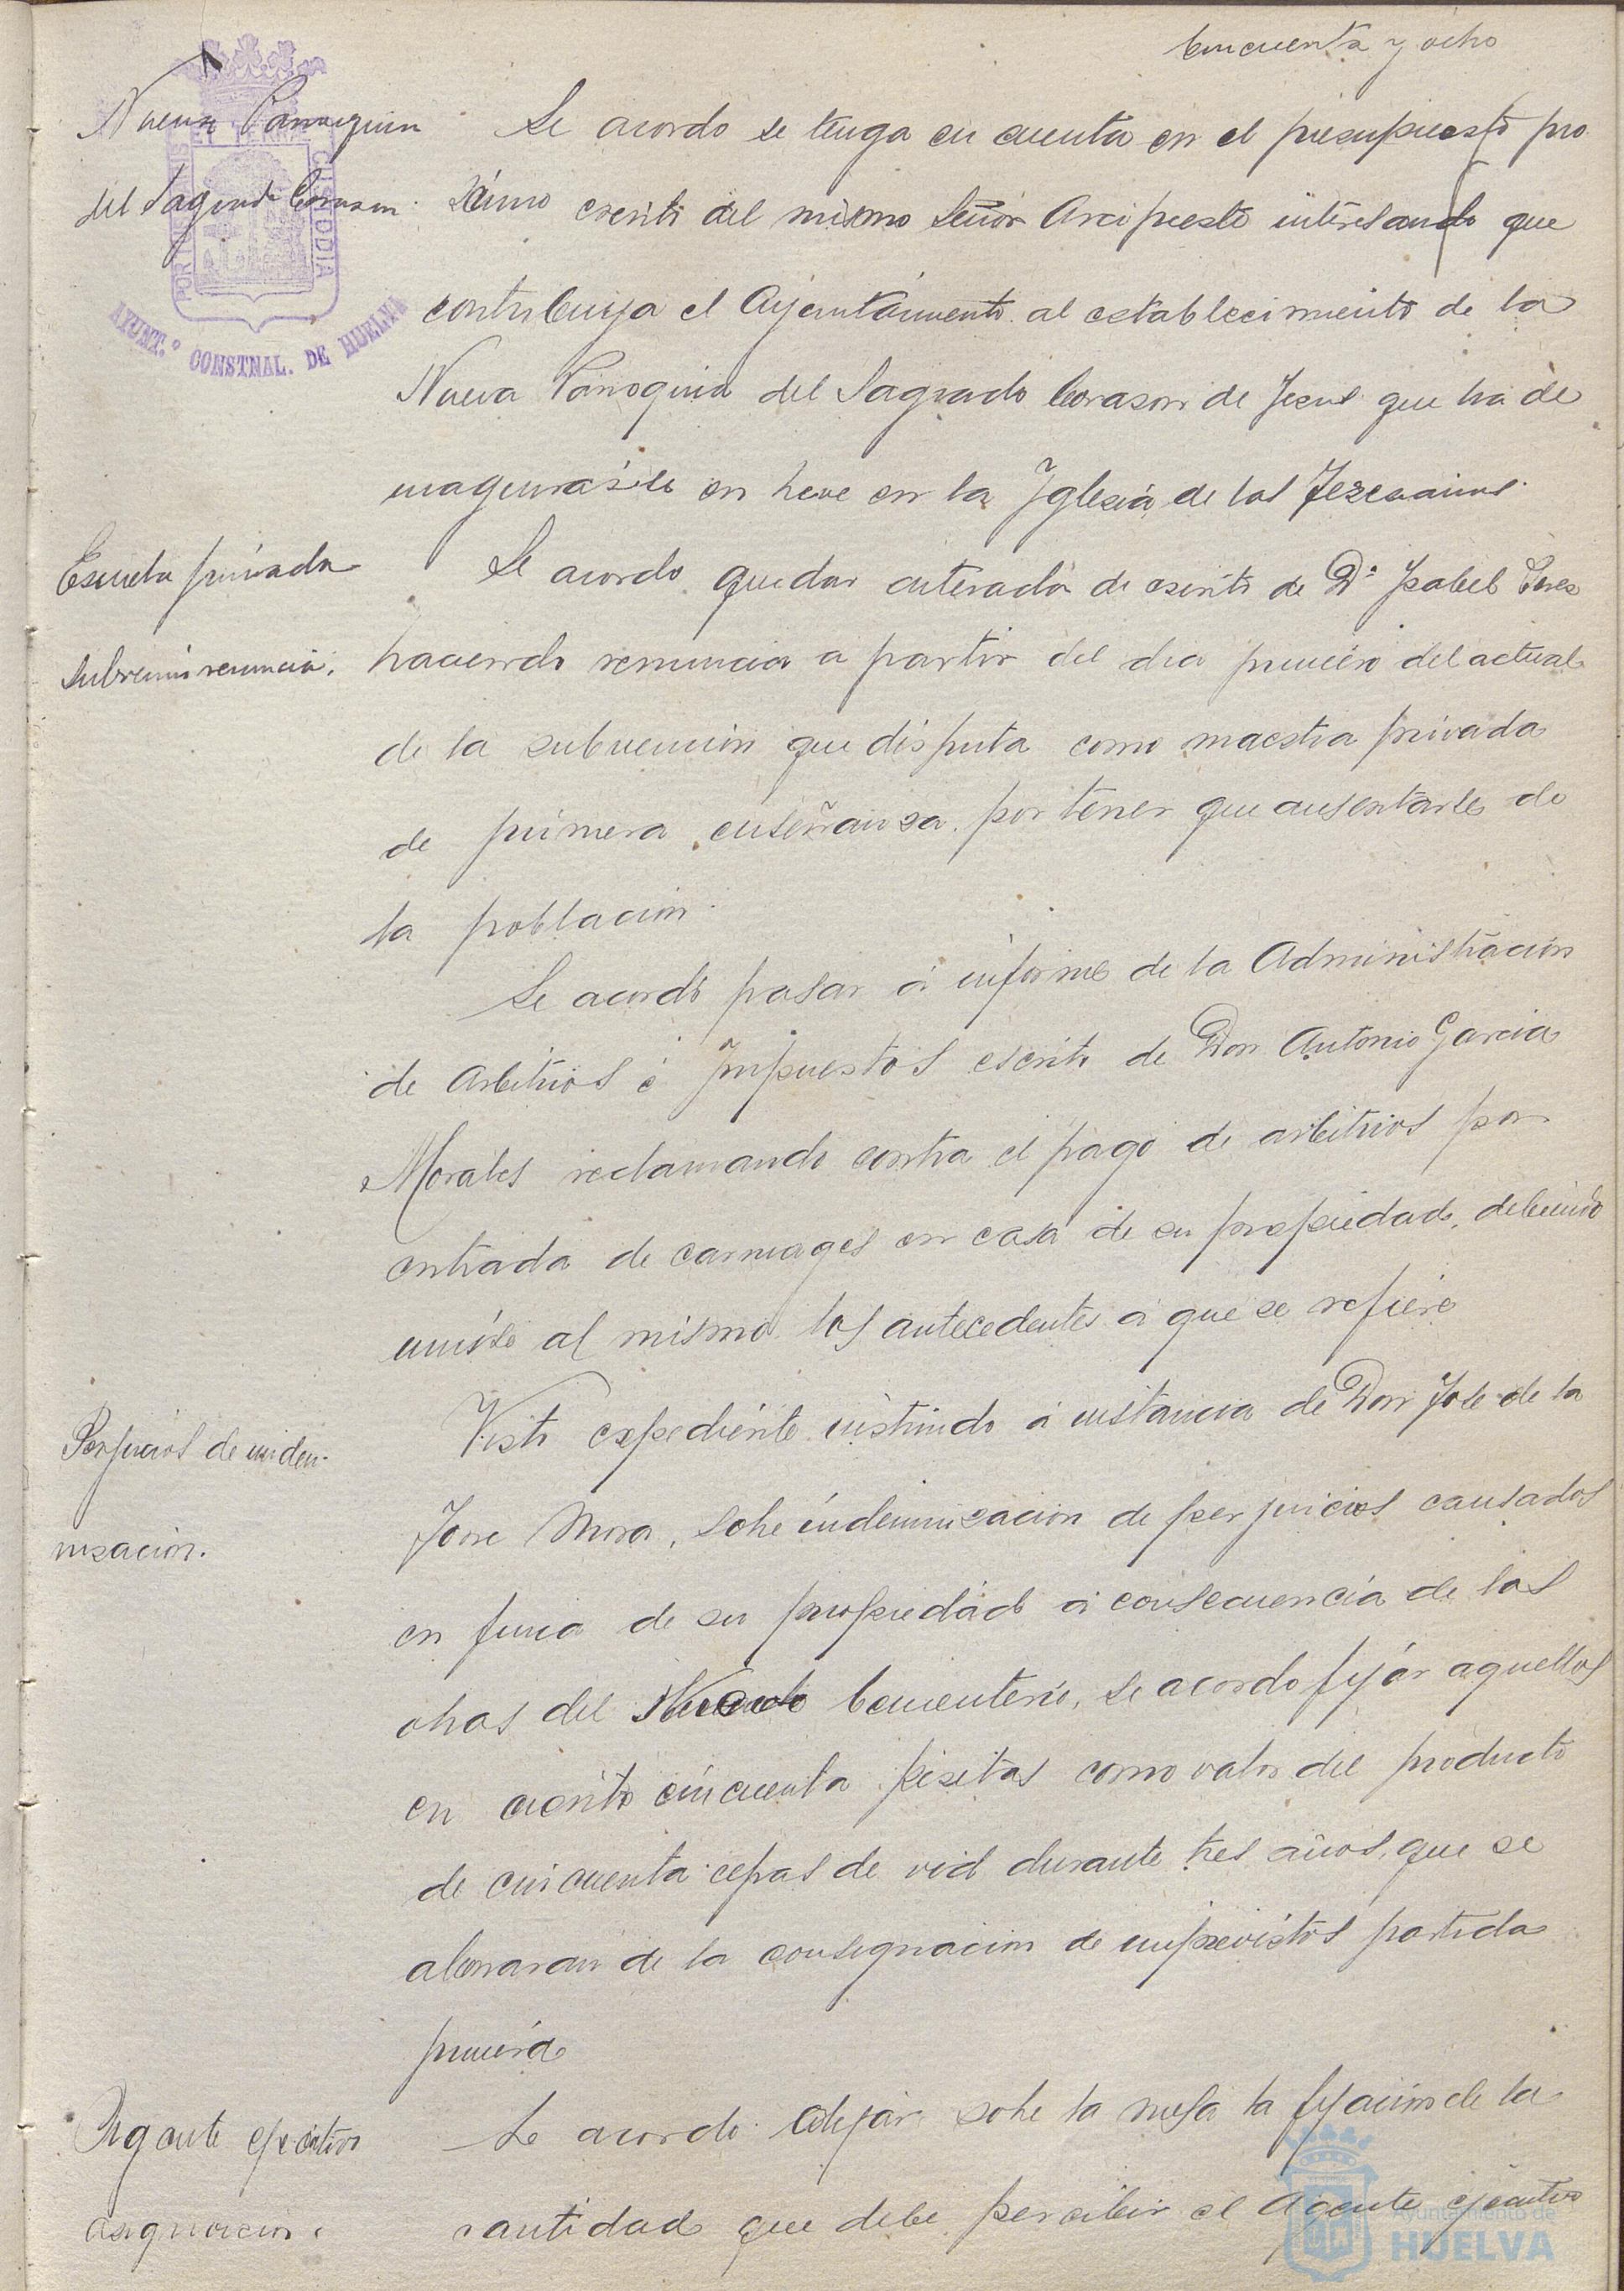 Cincuenta y ocho
Nueva Parroquia
del Sagrado Corazon.
PORTUS MARIS ET TERRAE CUSTODIA
AYUNT.º CONSTNAL. DE HUELVA
Se acordo se tenga en cuenta en el presupuesto pro
ximo escrito del mismo Señor Arcipreste interesando que
contribuya el Ayuntamiento al establecimiento de la
Nueva Parroquia del Sagrado Corason de Jesus que ha de
inagurarse en breve en la Iglesia de los Jesuainos.
Escuela privada
Subvención renuncia.
Se acordo quedar enterada de escrito de Dª Isabel Peres
haciendo renuncia a partir del dia primero del actual
de la subvencion que disfruta como maestra privada
de primera enseñansa por tener que ausentarse de
la poblacion.
Se acordó pasar á informe de la Administracion
de Arbitrios é Impuestos escrito de Don Antonio Garcia
Morales reclamando contra el pago de arbitrios por
entrada de carruages en casa de su propiedad, debiendo
unirse al mismo los antecedentes á que se refiere
Perjuicios de indem-
nizacion.
Visto expediente instruido á instancia de Don Jose de la
Torre Mora, sobre indemnizacion de perjuicios causados
en finca de su propiedad á consecuencia de las
obras del Nuevo Cementerio, se acordo fijar aquellos
en ciento cincuenta pesetas como valor del producto
de cincuenta cepas de vid durante tres años, que se
abonaran de la consignacion de imprevistos partida
primera
Agente ejecutivo
asignacion.
Se acordo dejar sobre la mesa la fijacion de la
cantidad que debe percibir el Agente ejecutivo
Ayuntamiento de
HUELVA